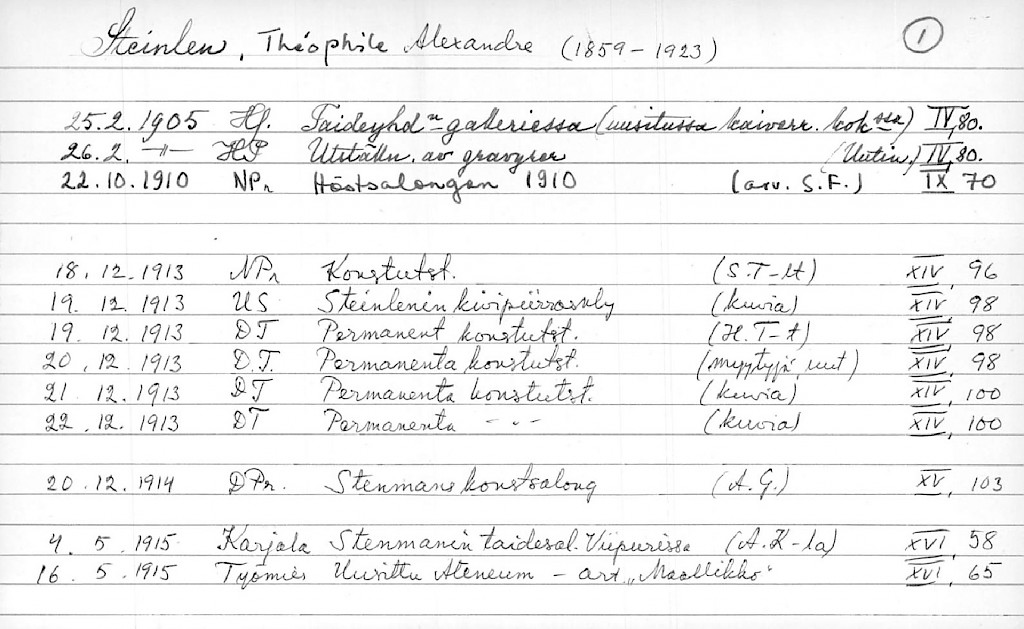 Steinlen, Théophile Alexandre (1859-1923) 1
25.2.1905 Hj. Taideyhd:n galleriessa (uusitussa kaiverr. kok:ssa) IV, 80.
26.2. -"- HP Utställn. av gravyrer (Uutin.) IV, 80.
22.10.1910 NPr Höstsalongen 1910 (arv. S.F.) IX 70
18.12.1913 NPr Konstutst. (S.T-lt) XIV, 96
19.12.1913 US Steinlenin kivipiirrosnly (kuvia) XIV, 98
19.12.1913 DT Permanent konstutst. (H.T-t) XIV, 98
20.12.1913 D.T. Permanenta konstutst. (myytyjä, uut) XIV, 98
21.12.1913 DT Permanenta konstutst. (kuvia) XIV, 100
22.12.1913 DT Permanenta -"- (kuvia) XIV, 100
20.12.1914 DPr. Stenmans konstsalong (A.G.) XV, 103
4.5.1915 Karjala Stenmanin taidesal. Viipurissa (A.K-la) XVI, 58
16.5.1915 Työmies Uusittu Ateneum - art. „Maallikko" XVI, 65